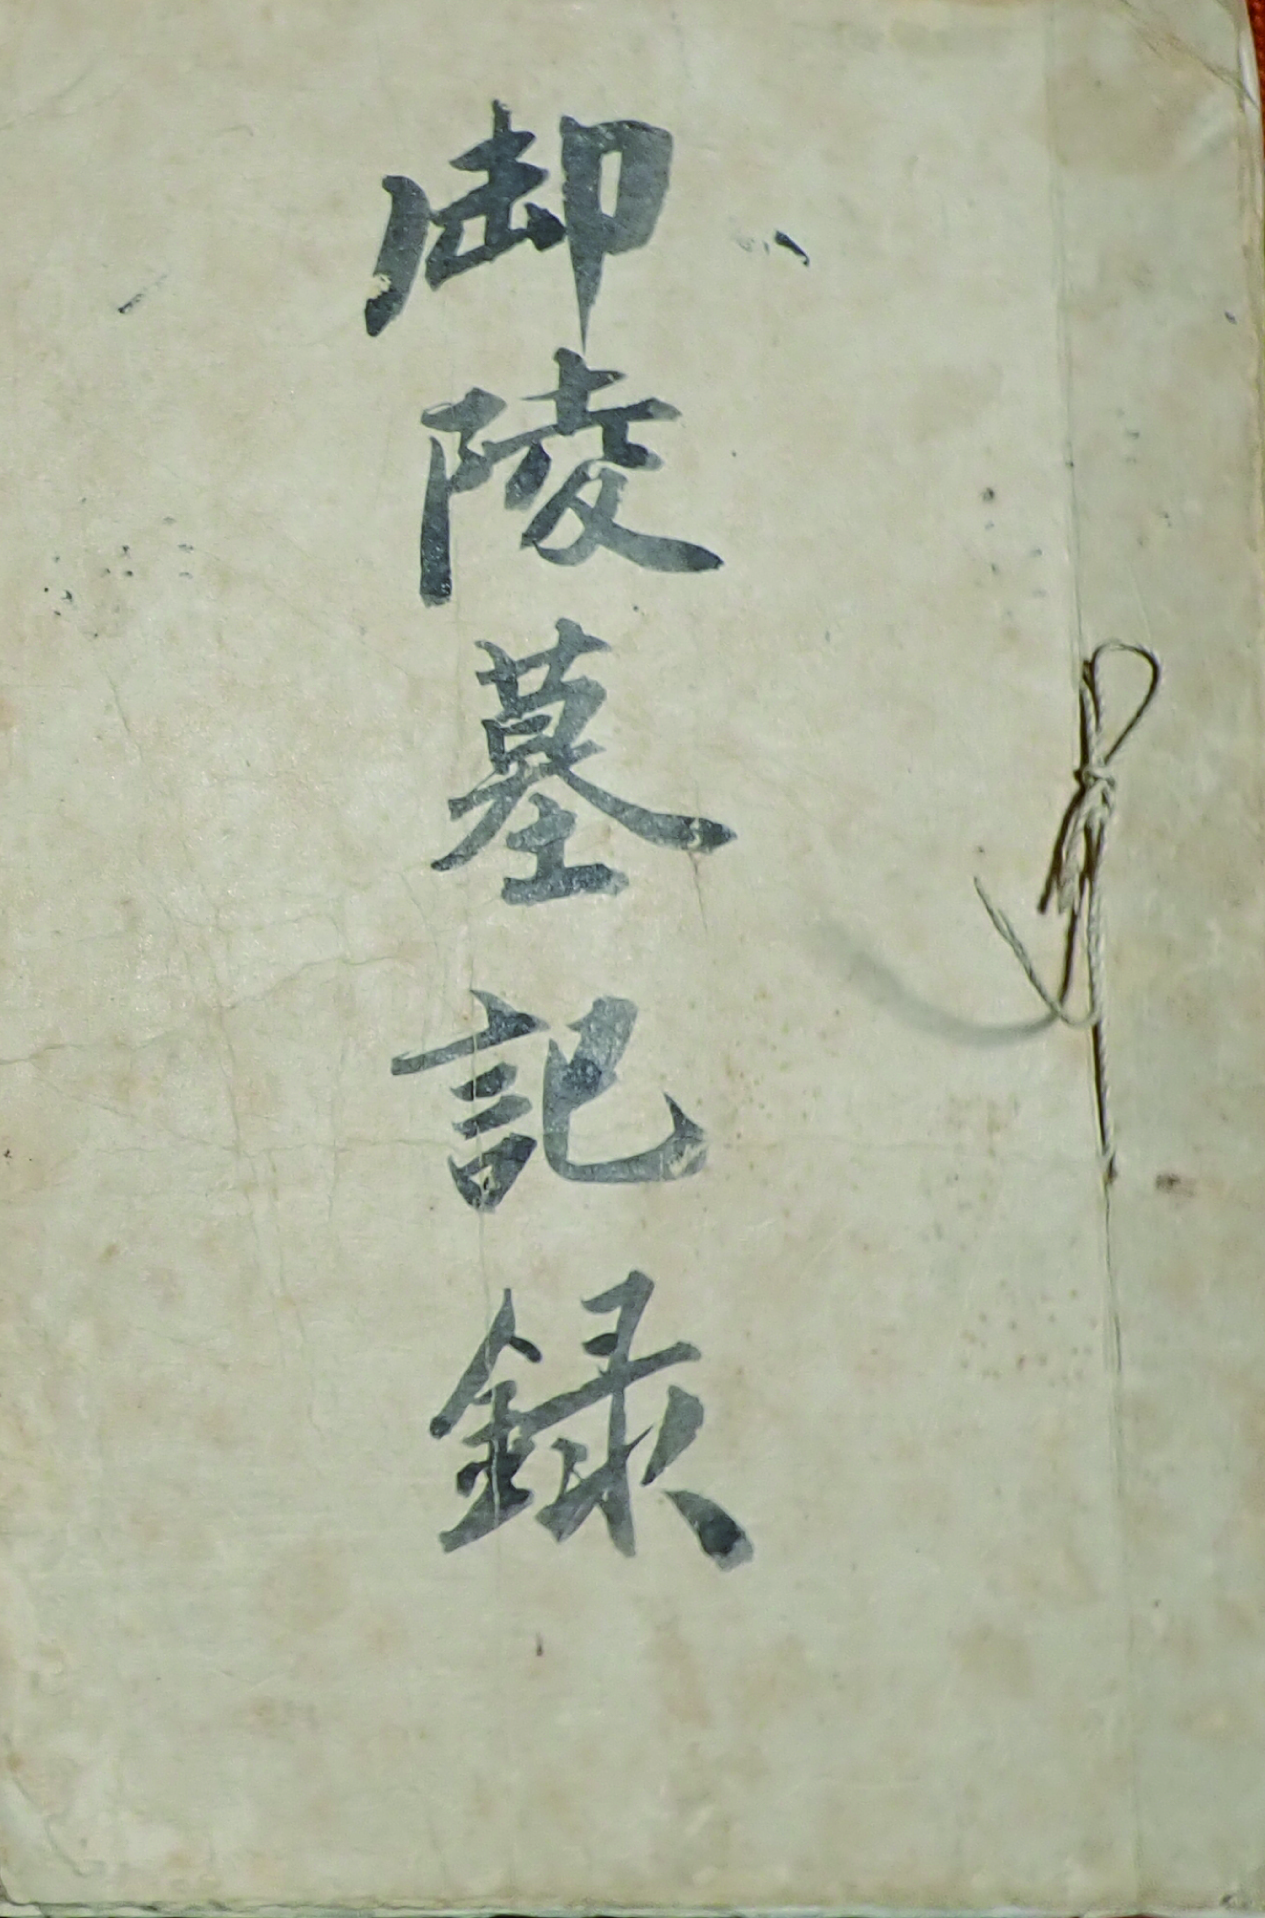 御陵墓記録